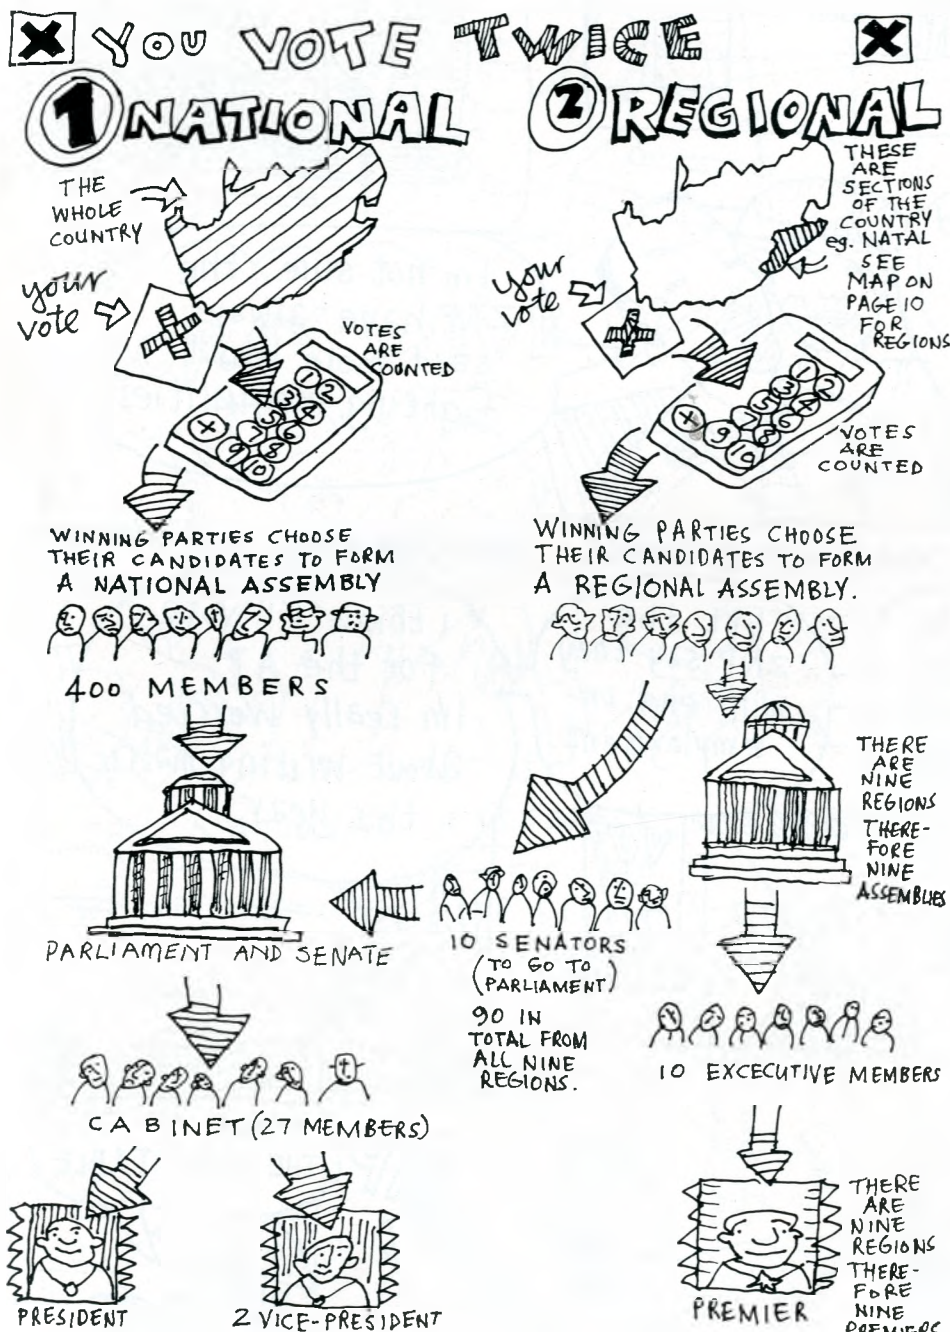 YOU VOTE TWICE
1 NATIONAL
THE
WHOLE
COUNTRY
your
vote
VOTES
ARE
COUNTED
1 2
3 4
5 6
7 8
9 10
+
WINNING PARTIES CHOOSE
THEIR CANDIDATES TO FORM
A NATIONAL ASSEMBLY
400 MEMBERS
PARLIAMENT AND SENATE
CABINET (27 MEMBERS)
PRESIDENT
2 VICE-PRESIDENT
2 REGIONAL
THESE
ARE
SECTIONS
OF THE
COUNTRY
eg. NATAL
SEE
MAP ON
PAGE 10
FOR
REGIONS
your
vote
1 2
3 4
5 6
7 8
9 10
+
VOTES
ARE
COUNTED
WINNING PARTIES CHOOSE
THEIR CANDIDATES TO FORM
A REGIONAL ASSEMBLY.
THERE
ARE
NINE
REGIONS
THERE-
FORE
NINE
ASSEMBLIES
10 SENATORS
(TO GO TO
PARLIAMENT)
90 IN
TOTAL FROM
ALL NINE
REGIONS.
10 EXCECUTIVE MEMBERS
PREMIER
THERE
ARE
NINE
REGIONS
THERE-
FORE
NINE
PREMIERS